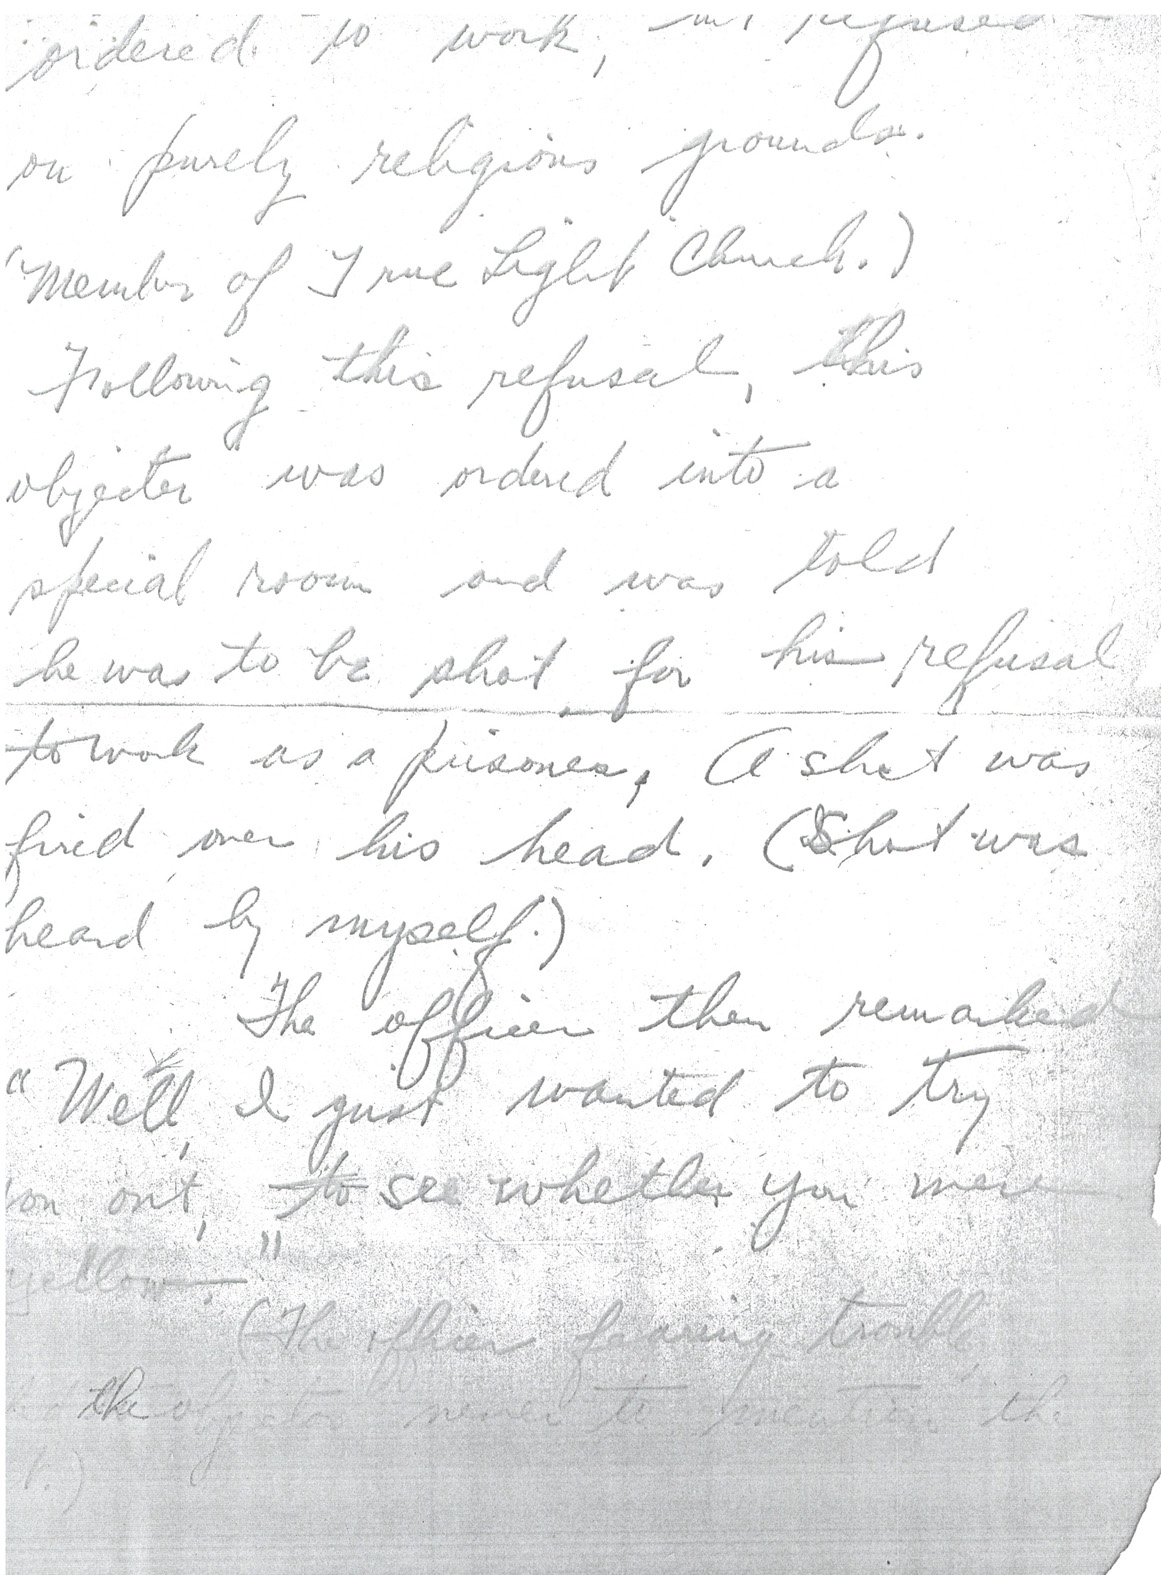 ordered to work, but refused
on purely religious grounds.
(Member of True Light Church.)
Following this refusal, this
objecter was ordered into a
special room and was told
he was to be shot for his refusal
to work as a prisoner. A shot was
fired over his head. (Shot was
heard by myself.)
The officer then remarked
"Well, I just wanted to try
you out, to see whether you were
yellow."
(The officer fearing trouble,
the objector never to mention the